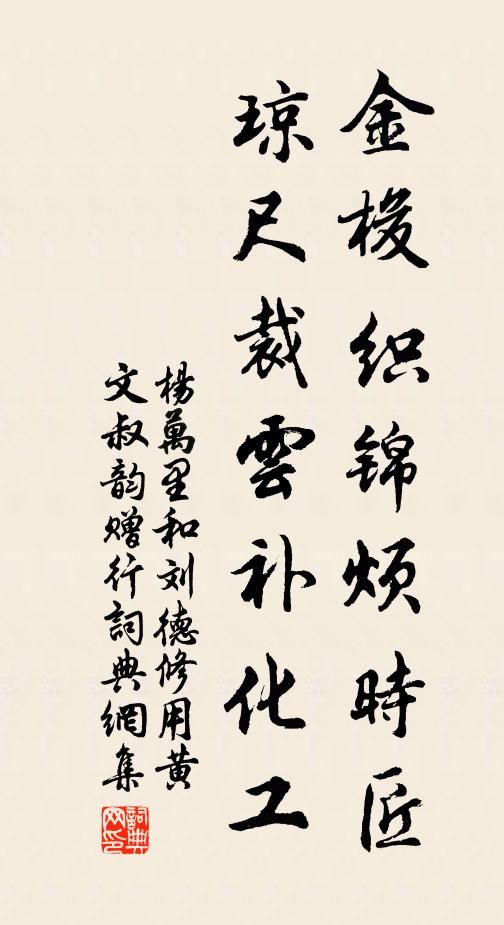 金梭织锦烦時匠
琼尺裁雲补化工
楊萬里和刘德修用黄
文叔韵赠行詞典網集
詞典
网印